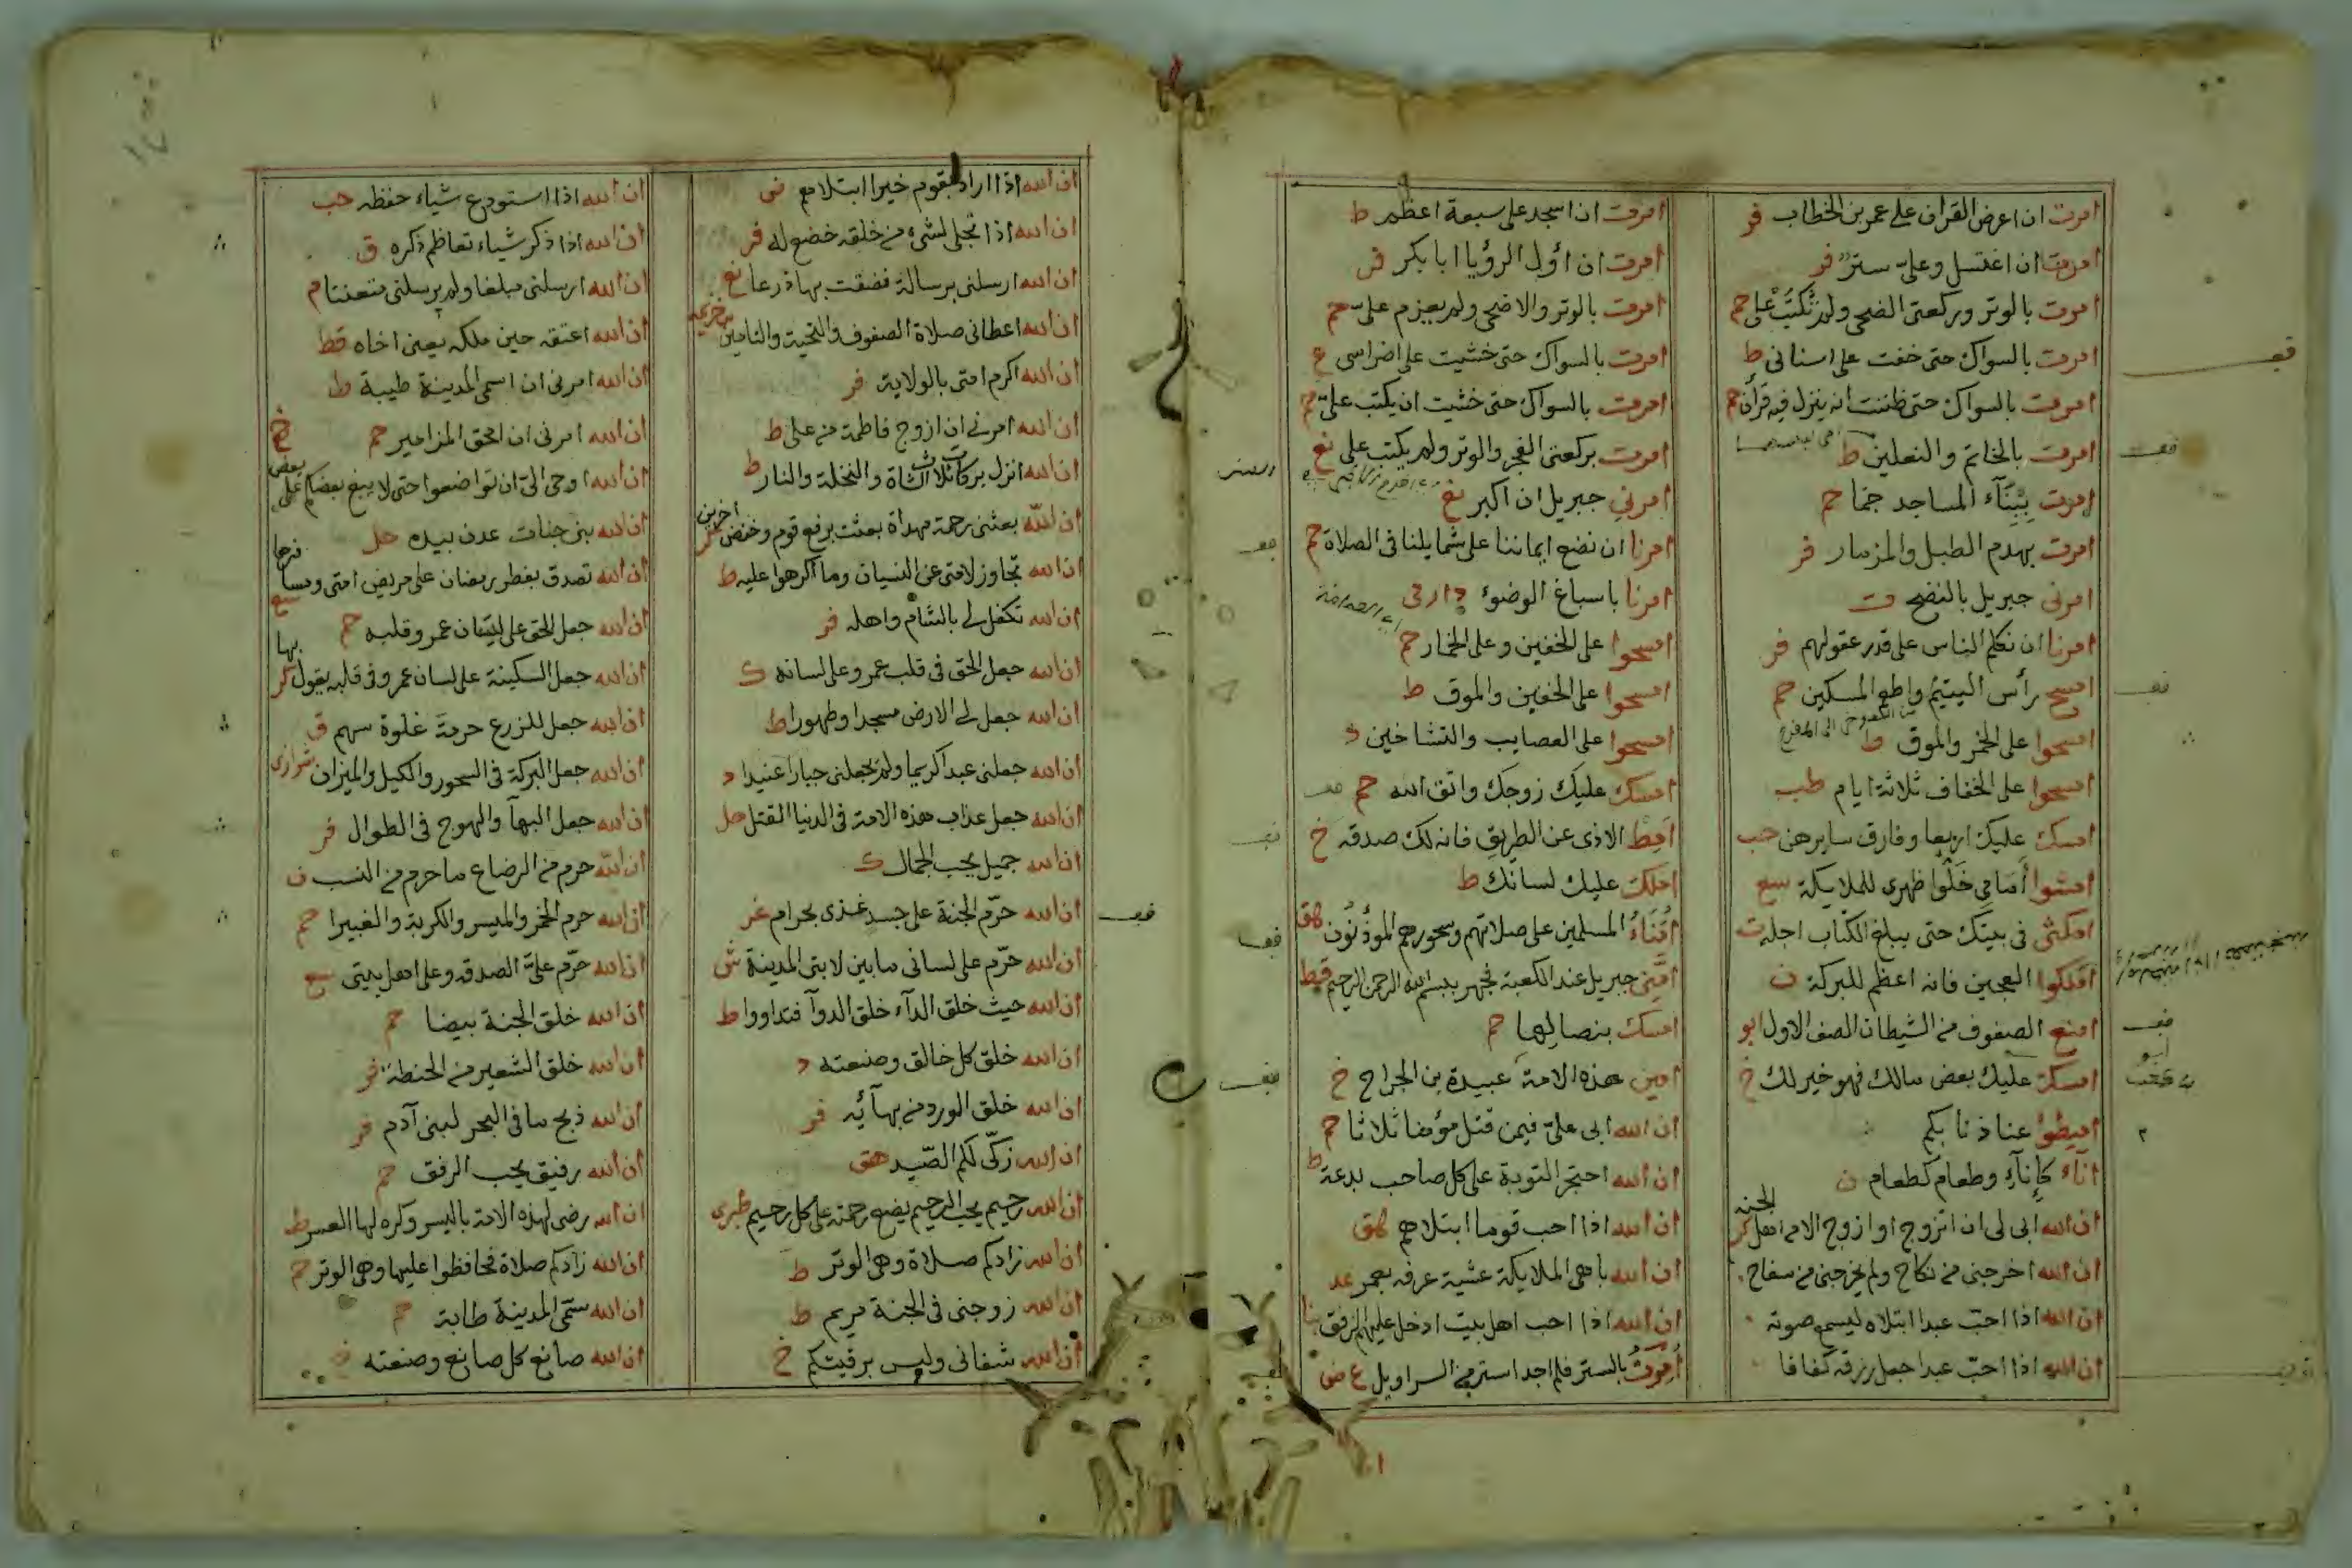 امرت ان اعرض القرآن على عمر بن الخطاب فر
امرت ان اغتسل وعلىّ ستر فر
امرت بالوتر وركعتى الضحى ولم تُكتَبْ على حم
امرت بالسواك حتى خفت على اسنانى ط
امرت بالسواك حتى ظننت انه ينزل فيه قرآن حم
امرت بالخاتم والنعلين ط
امرت بِبَنَآء المساجد جما حم
امرت بهدم الطبل والمزمار فر
امرنى جبريل بالنضح قت
امرنا ان نكلم الناس على قدر عقولهم فر
امسح رأس اليتيم واطعم المسكين حم
امسحوا على الخمر والموق ط
امسحوا على الخفاف ثلاثة ايام طب
امسك عليك اربعا وفارق سايرهن حب
امشوا أمَامِى خَلُّوا ظهرى للملايكة سع
امكثى فى بيتك حتى يبلغ الكتاب اجله ت
أملكوا العجين فانه اعظم للبركة ف
امنع الصفوف من الشيطان الصف الاول ابو
امسك عليك بعض مالك فهو خير لك خ
اميطوا عنا
انآء كإنآء وطعام كطعام ن
ان الله ابى لى ان اتزوج او ازوج الا من اهل الجنة كر
ان الله اخرجنى من نكاح ولم يخرجنى من سفاح
ان الله اذا احبّ عبدا ابتلاه ليسمع صوته
ان الله اذا احبّ عبدا جعل رزقه كفافا
امرت ان اسجد على سبعة اعظم ط
امرت ان اؤل الرؤيا ابا بكر فر
امرت بالوتر والاضحى ولم يعزم علىّ حم
امرت بالسواك حتى خشيت على اضراسى ع
امرت بالسواك حتى خشيت ان يكتب علىّ حم
امرت بركعتى الفجر والوتر ولم يكتب على نع
امرنى جبريل ان اكبر نغ
امرنا ان نضع ايماننا على شمايلنا فى الصلاة حم
امرنا باسباغ الوضوء دارقى
امسحوا على الخفين وعلى الخمار حم
امسحوا على الخفين والموق ط
امسحوا على العصايب والتشاخين د
امسك عليك زوجك واتق الله حم
اَمِط الاذى عن الطريق فانه لك صدقه خ
املك عليك لسانك ط
اُمَنَاءُ المسلمين على صلاتهم وسحورهم الموذنون هق
اَمَّنِى جبريل عند الكعبة فجهر ببسم الله الرحمن الرحيم قط
امسك بنصالها حم
امين هذه الامة عبيدة بن الجراح خ
ان الله ابى علىّ فيمن قتل مؤمنا ثلاثا حم
ان الله احتجز التوبة على كل صاحب بدعة ط
ان الله اذا احب قوما ابتلاهم هق
ان الله باهى الملايكة عشية عرفه بعمر عد
ان الله اذا احب اهل بيت ادخل عليهم الرفق
اُمِرْتُ بالستر فلم اجد استر من السراويل ع ض
ان الله اذا اراد بقوم خيرا ابتلاهم ض
ان الله اذا تجلى لشىء من خلقه خضع له فر
ان الله ارسلنى برسالة فضقت بها ذرعا نغ
ان الله اعطانى صلاة الصفوف والتحية والتامين بن خزيمة
ان الله اكرم امتى بالولاية فر
ان الله امرنى ان ازوج فاطمة من على ط
ان الله انزل بركات ثلاث الشاة والنخلة والنار ط
ان اللّه بعثنى رحمة مهداة بعثت برفع قوم وخفض آخرين كر
ان الله تجاوز لامتى عن النسيان وما اكرهوا عليه ط
ان الله تكفل لى بالشام واهله فر
ان الله جعل الحق فى قلب عمر وعلى لسانه ك
ان الله جعل لى الارض مسجدا وطهورا ط
ان الله جعلنى عبدا كريما ولم يجعلنى جبارا عنيدا د
ان الله جعل عذاب هذه الامة فى الدنيا القتل حل
ان الله جميل يحب الجمال ك
ان الله حرّم الجنة على جسد غذى بحرام غر
ان الله حرّم على لسانى ما بين لابتى المدينة ش
ان الله حيث خلق الدآء خلق الدوآ فتداووا ط
ان الله خلق كل خالق وصنعته د
ان الله خلق الورد من بهآئه فر
ان الله زكّى لكم الصّيد هق
ان الله رحيم يحب الرحيم يضع رحمته على كل رحيم طبرى
ان الله زادكم صلاة وهى الوتر ط
ان الله زوجنى فى الجنة مريم ط
ان الله شفانى وليس برقيتكم خ
ان الله اذا استودع شياء حفظه حب
ان الله اذا ذكر شياء تعاظم ذكره ق
ان الله ارسلنى مبلغا ولم يرسلنى متعنتا م
ان الله اعتقه حين ملكه يعنى اخاه قط
ان الله امرنى ان اسمى المدينة طيبة ط
ان الله امرنى ان امحق المزامير حم
ان الله اوحى الىّ ان تواضعوا حتى لا يبغ بعضكم على بعض
ان الله بنى جنات عدن بيده حل
ان الله تصدق بفطر رمضان على مريض امتى ومسافرها سع
ان الله جعل الحق على لسان عمر وقلبه حم
ان الله جعل السكينة على لسان عمر وفى قلبه يقول بها كر
ان الله جعل للزرع حرمة غلوة سهم ق
ان الله جعل البركة فى السحور والكيل والميزان شرازى
ان الله جعل البهآ والهوج فى الطوال فر
ان اللّه حرم من الرضاع ما حرم من النسب ف
ان الله حرم الخمر والميسر والكوبة والغبيرا حم
ان الله حرّم علىّ الصدقه وعلى اهل بيتى سع
ان الله خلق الجنة بيضا حم
ان الله خلق الشعير من الحنطة فر
ان الله ذبح ما فى البحر لبنى آدم فر
ان الله رفيق يحب الرفق حم
ان الله رضى لهذه الامة باليسر وكره لها العسر ط
ان الله زادكم صلاة فحافظوا عليها وهى الوتر حم
ان الله سمّى المدينة طابة حم
ان الله صانع كل صانع وصنعته خ